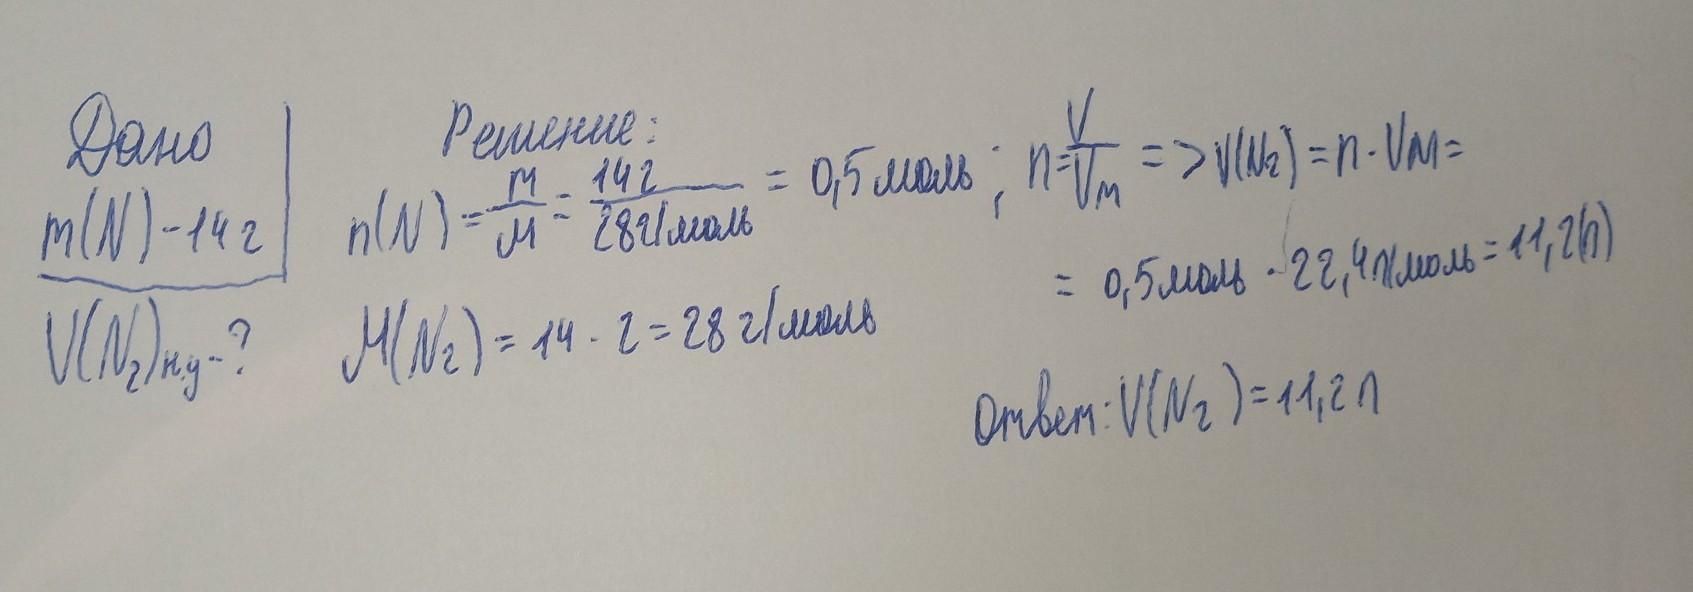 Дано
m(N) - 14 г
V(N₂)н.у - ?
Решение:
n(N) = m/M = 14 г/28 г/моль = 0,5 моль ; n = V/Vм => V(N₂) = n · Vм =
= 0,5 моль · 22,4 л/моль = 11,2 (л)
M(N₂) = 14 · 2 = 28 г/моль
Ответ: V(N₂) = 11,2 л